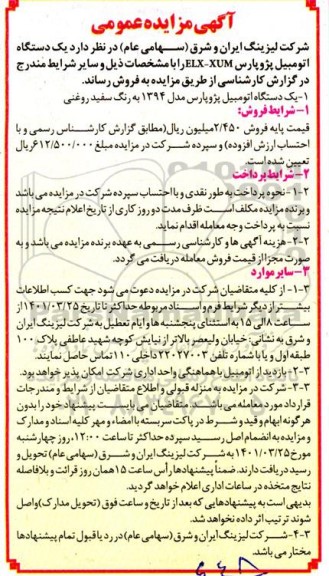 آگهی مزایده عمومی
شرکت لیزینگ ایران و شرق (سهامی عام) در نظر دارد یک دستگاه
اتومبیل پژو پارس ELX-XUM را با مشخصات ذیل و سایر شرایط مندرج
در گزارش کارشناسی از طریق مزایده به فروش رساند.
۱-یک دستگاه اتومبیل پژو پارس مدل ۱۳۹۴ به رنگ سفید روغنی
۱-شرایط فروش:
قیمت پایه فروش ۲/۴۵۰میلیون ریال(مطابق گزارش کارشناس رسمی و با
احتساب ارزش افزوده) و سپرده شرکت در مزایده مبلغ ۶۱۲/۵۰۰/۰۰۰ریال
تعیین شده است.
۲-شرایط پرداخت
۱-۲-نحوه پرداخت به طور نقدی و با احتساب سپرده شرکت در مزایده می باشد
و برنده مزایده مکلف است ظرف مدت دو روز کاری از تاریخ اعلام نتیجه مزایده
نسبت به پرداخت وجه معامله اقدام نماید.
۲-۲-هزینه آگهی ها و کارشناسی رسمی به عهده برنده مزایده می باشد و به
صورت مجزا از قیمت فروش معامله دریافت می گردد.
۳-سایر موارد
۱-۳-از کلیه متقاضیان شرکت در مزایده دعوت می شود جهت کسب اطلاعات
بیشتر از دیگر شرایط فرم و اسناد مربوطه حداکثر تا تاریخ ۱۴۰۱/۰۳/۲۵ از
ساعت ۸ الی ۱۵ به استثنای پنجشنبه ها و ایام تعطیل به شرکت لیزینگ ایران
و شرق به نشانی: خیابان ولیعصر بالاتر از نیایش کوچه شهید عاطفی پلاک ۱۰۰
طبقه اول و یا با شماره تلفن ۲۲۰۲۷۰۰۳ داخلی ۱۱۰ تماس حاصل نمایند.
۲-۳-بازدید از اتومبیل با هماهنگی واحد اداری شرکت امکان پذیر خواهد بود.
۳-۳-شرکت در مزایده به منزله قبولی و اطلاع متقاضیان از شرایط و مندرجات
قرارداد مورد معامله می باشد. متقاضیان می بایست پیشنهاد خود را بدون
هرگونه ابهام و قید و شرط در پاکت سربسته با امضاء و مهر کلیه اسناد و مدارک
و مزایده به انضمام اصل رسید سپرده حداکثر تا ساعت ۱۲:۰۰، روز چهارشنبه
مورخ ۱۴۰۱/۰۳/۲۵ به شرکت لیزینگ ایران و شرق (سهامی عام) تحویل و
رسید دریافت دارند. ضمناً پیشنهادها رأس ساعت ۱۵ همان روز قرائت و بلافاصله
نتایج متخذه در ساعات اداری اعلام خواهد گردید.
بدیهی است به پیشنهادهایی که بعد از تاریخ و ساعت فوق (تحویل مدارک) واصل
شوند ترتیب اثر داده نخواهد شد.
۴-۳-شرکت لیزینگ ایران و شرق (سهامی عام) در رد یا قبول تمام پیشنهادها
مختار می باشد.